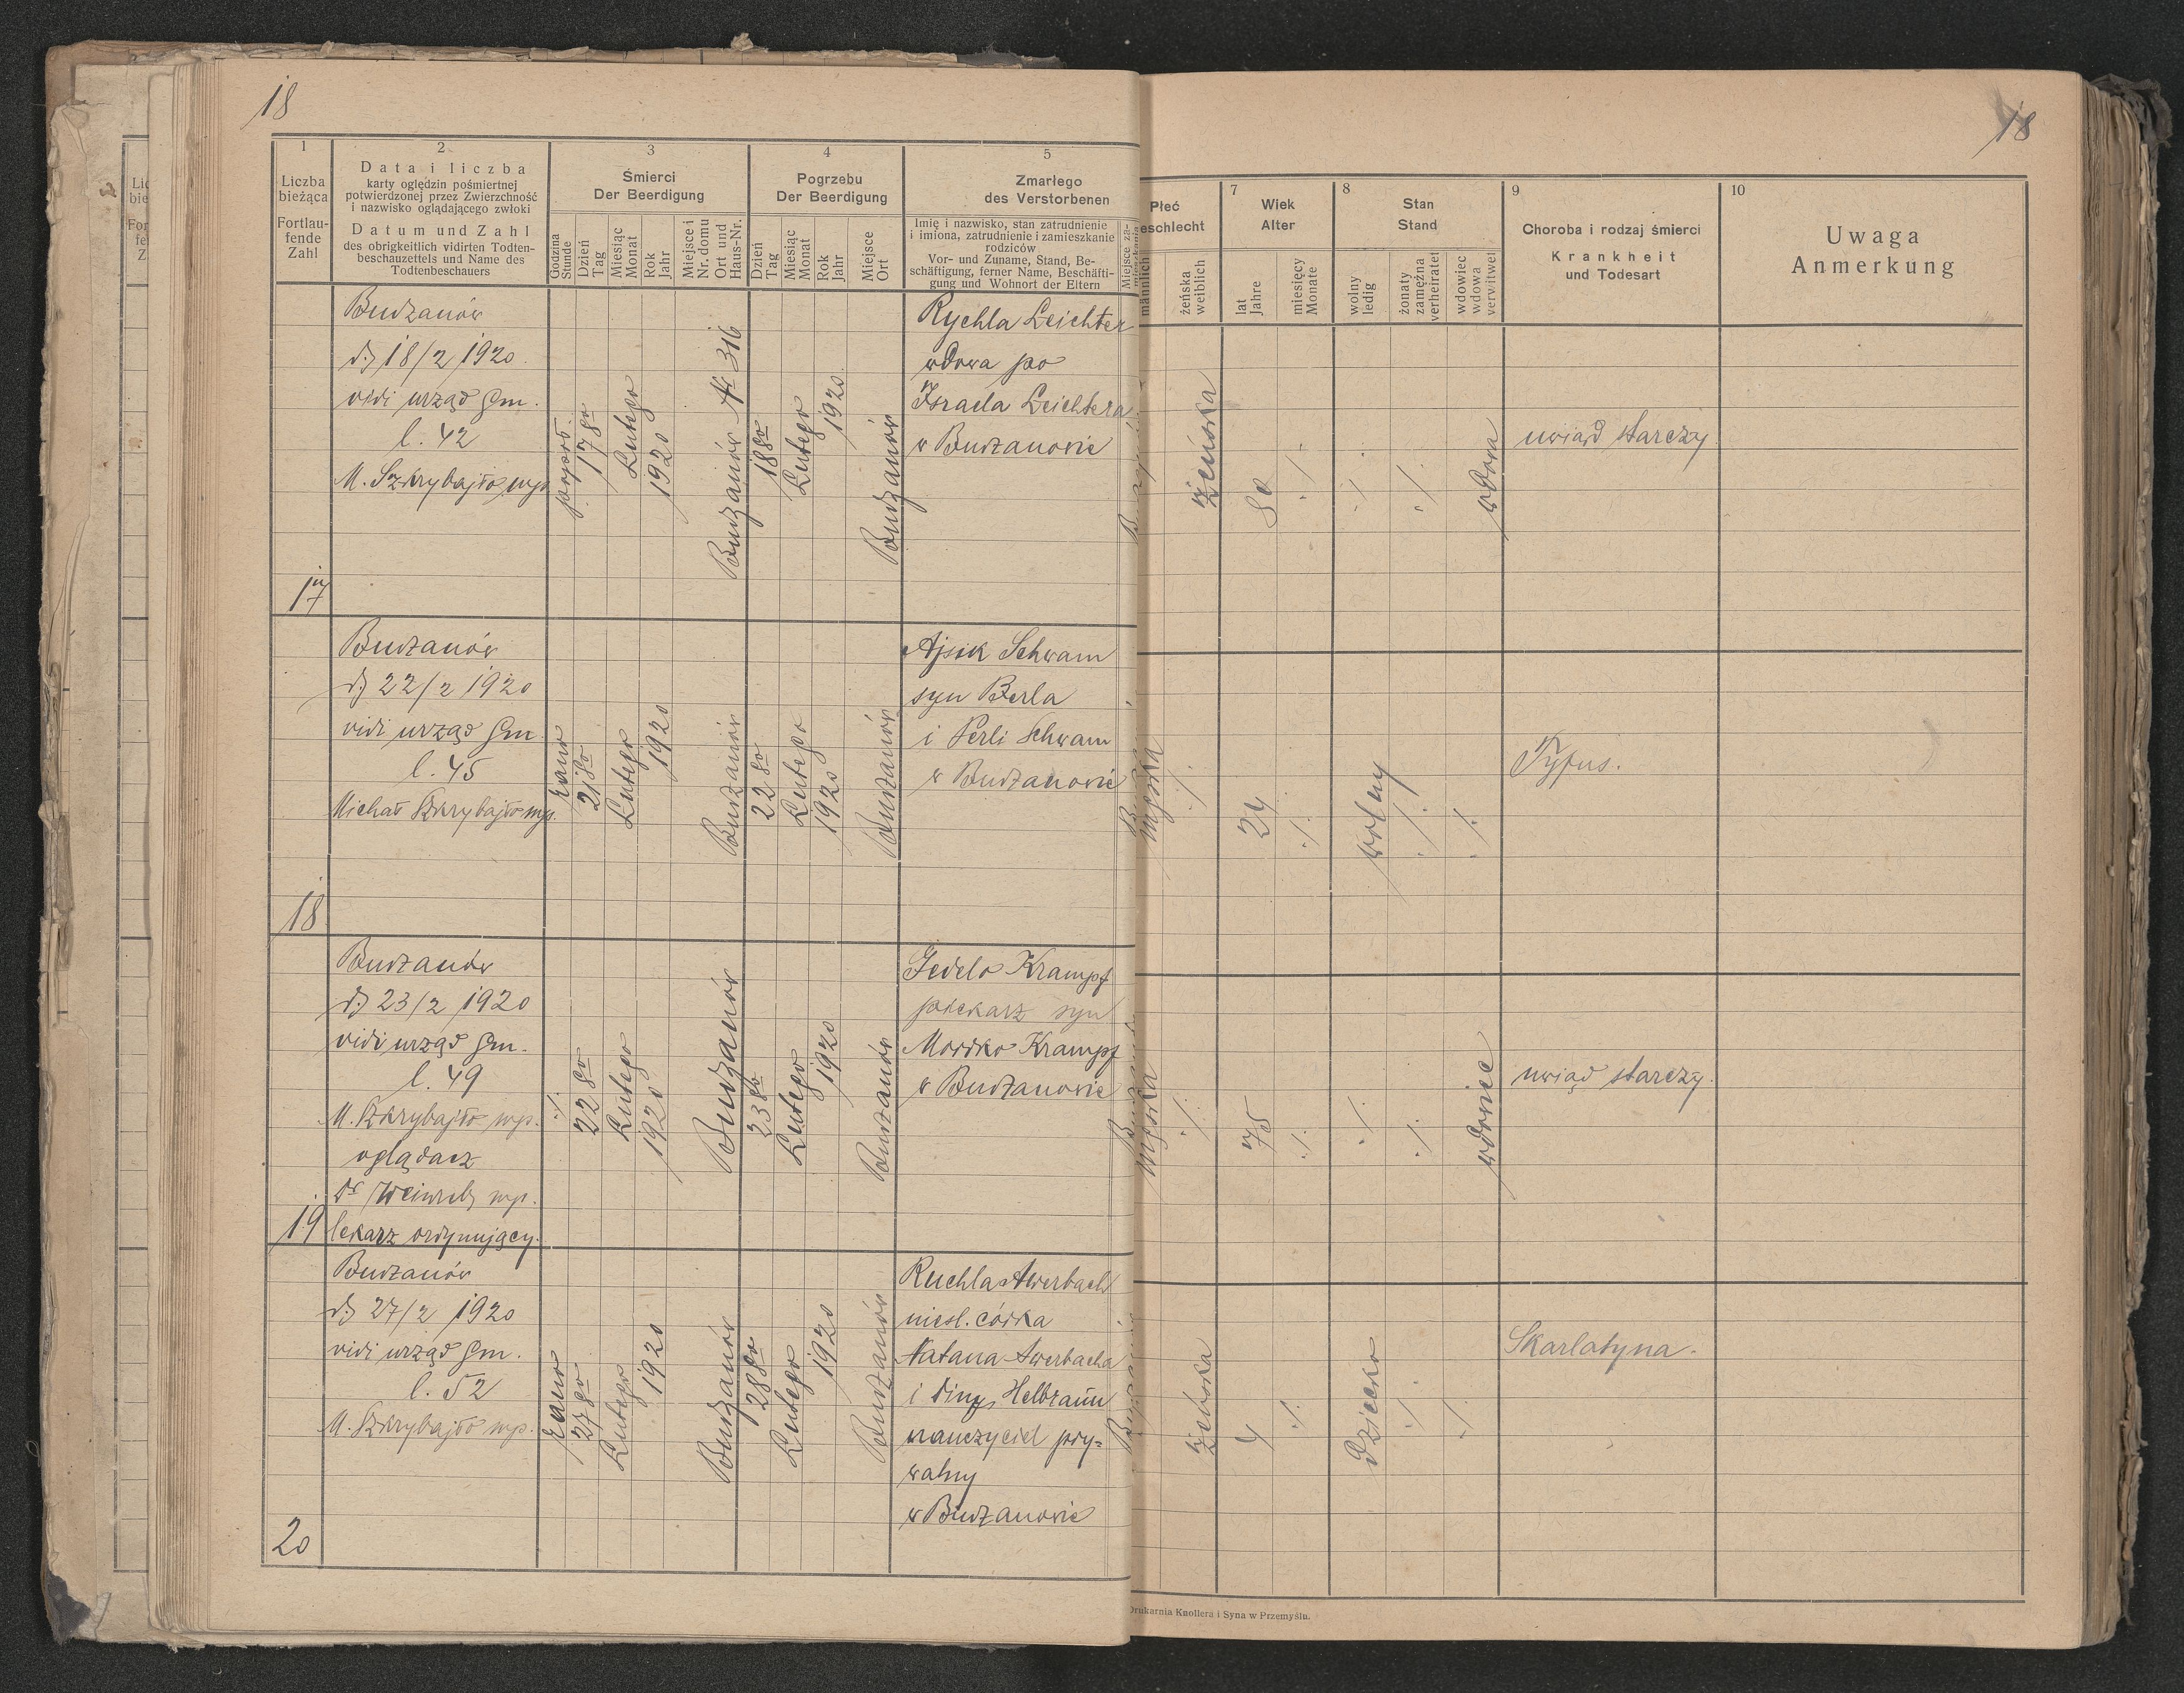 18
18
1
Liczba
bieżąca
Fortlau-
fende
Zahl
2
Data i liczba
karty oględzin pośmiertnej
potwierdzonej przez Zwierzchność
i nazwisko oglądającego zwłoki
Datum und Zahl
des obrigkeitlich vidirten Todten-
beschauzettels und Name des
Todtenbeschauers
3
Śmierci
Der Beerdigung
Godzina
Stunde
Dzień
Tag
Miesiąc
Monat
Rok
Jahr
Miejsce i
Nr. domu
Ort und
Haus-Nr.
4
Pogrzebu
Der Beerdigung
Dzień
Tag
Miesiąc
Monat
Rok
Jahr
Miejsce
Ort
5
Zmarłego
des Verstorbenen
Imię i nazwisko, stan zatrudnienie
i imiona, zatrudnienie i zamieszkanie
rodziców
Vor- und Zuname, Stand, Be-
schäftigung, ferner Name, Beschäfti-
gung und Wohnort der Eltern
Miejsce za-
Płeć
eschlecht
männlich
żeńska
weiblich
7
Wiek
Alter
lat
Jahre
miesięcy
Monate
8
Stan
Stand
wolny
ledig
żonaty
zamężna
verheiratet
wdowiec
wdowa
verwitwet
9
Choroba i rodzaj śmierci
Krankheit
und Todesart
10
Uwaga
Anmerkung
17
Budzanów
18/2 1920
vidi urząd gm.
l. 42
M. Szkrybajło mp.
17go
Lutego
1920
Budzanów № 316
18go
Lutego
1920
Budzanów
Rychla Leichter
wdowa po
Izraela Leichtera
w Budzanowie
żeńska
80
./.
./.
./.
wdowa
uwiąd starczy
18
Budzanów
22/2 1920
vidi urząd gm.
l. 45
Michał Szkrybajło mp.
rano
21go
Lutego
1920
Budzanów
22go
Lutego
1920
Budzanów
Ajsik Schwam
syn Berla
i Perli Schwam
w Budzanowie
męska
./.
24
./.
wolny
./.
./.
Tyfus.
19
Budzanów
23/2 1920
vidi urząd gm.
l. 49
M. Szkrybajło mp.
oglądacz
Dr Weinreb mp.
lekarz ordynujący.
./.
22go
Lutego
1920
Budzanów
23go
Lutego
1920
Budzanów
Jedelo Krampf
piekarz syn
Mordko Krampf
w Budzanowie
męska
./.
75
./.
./.
./.
wdowiec
uwiąd starczy.
20
Budzanów
27/2 1920
vidi urząd gm.
l. 52
M. Szkrybajło mp.
rano
27go
Lutego
1920
Budzanów
28go
Lutego
1920
Budzanów
Ruchla Awerbach
niesl. córka
Natana Awerbacha
i Diny Helbraun
nauczyciel pry=
watny
w Budzanowie
żeńska
4
./.
dziecko
./.
./.
Skarlatyna.
Drukarnia Knollera i Syna w Przemyślu.